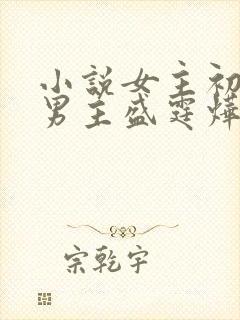 小說女主初
男主盛霆燁
宗乾宇